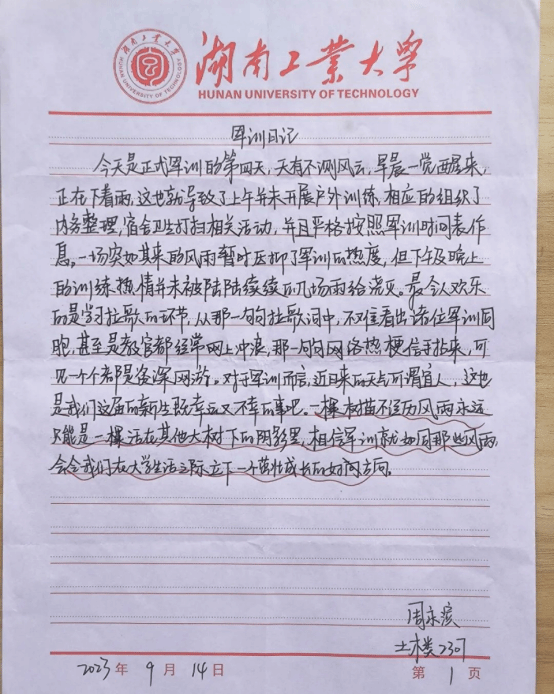 湖南工業大學
HUNAN UNIVERSITY OF TECHNOLOGY
军训日记
今天是正式军训的第四天，天有不测风云，早晨一觉醒来，
正在下着雨，这也就导致了上午并未开展户外训练，相应的组织了
内务整理，宿舍卫生打扫相关活动，并且严格按照军训时间表作
息。一场突如其来的风雨暂时压抑了军训的热度，但下午及晚上
的训练热情并未被陆陆续续的几场雨给浇灭。最令人欢乐
的是学习拉歌的环节，从那一句句拉歌词中，不难看出诸位军训同
胞，甚至是教官都经常网上冲浪，那一句句网络热梗信手拈来，可
见一个个都是资深网游。对于军训而言，近日来的天气可谓宜人，这也
是我们这届的新生既幸运又不幸的事吧。一棵树苗不经历风雨永远
只能是一棵活在其他大树下的阴影里，相信军训就如同那些风雨
会令我们在大学生活之际立下一个茁壮成长的好的方向。
土木类2307
2023 年 9 月 14 日
第 1 页